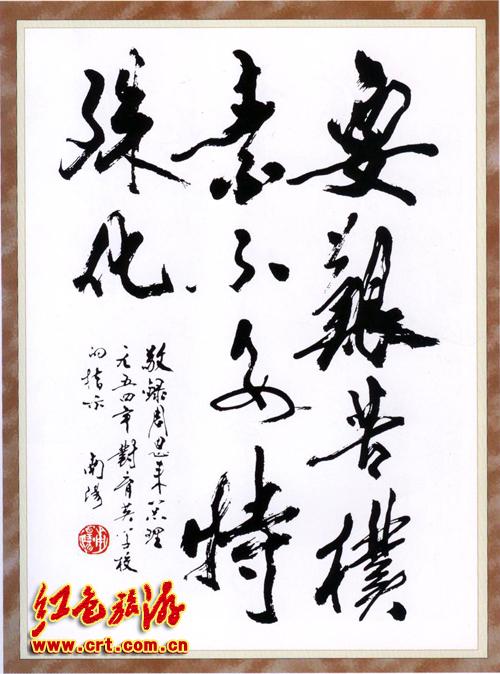 要艱苦樸
素不要特
殊化
敬録周恩来总理
一九五四年對育英学校
的指示
南
红色旅游
www.crt.com.cn